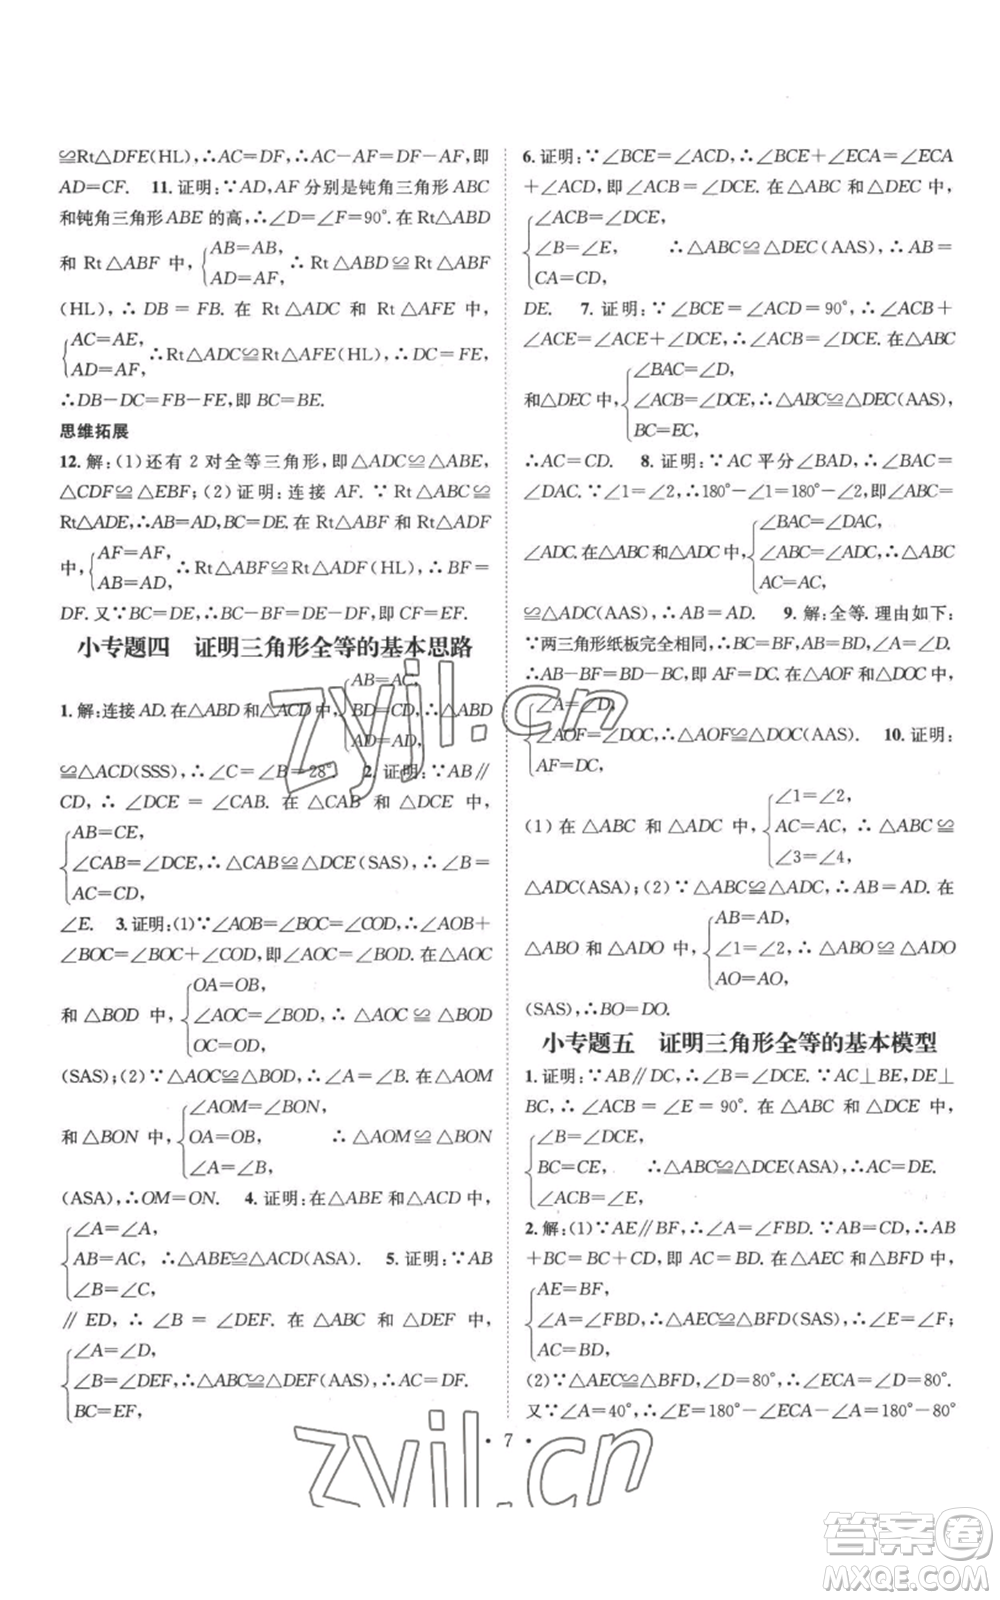 ≌Rt△DFE(HL),∴AC=DF,∴AC-AF=DF-AF,即
AD=CF. 11.证明:∵AD,AF分别是钝角三角形ABC
和钝角三角形ABE的高,∴∠D=∠F=90°.在Rt△ABD
AB=AB,
和Rt△ABF中,{ ∴Rt△ABD≌Rt△ABF
AD=AF,
(HL),∴DB=FB.在Rt△ADC和Rt△AFE中,
AC=AE,
{ ∴Rt△ADC≌Rt△AFE(HL),∴DC=FE,
AD=AF,
∴DB-DC=FB-FE,即BC=BE.
思维拓展
12.解:(1)还有2对全等三角形,即△ADC≌△ABE,
△CDF≌△EBF;(2)证明:连接AF.∵Rt△ABC≌
Rt△ADE,∴AB=AD,BC=DE.在Rt△ABF和Rt△ADF
AF=AF,
中,{ ∴Rt△ABF≌Rt△ADF(HL),∴BF=
AB=AD,
DF.又∵BC=DE,∴BC-BF=DE-DF,即CF=EF.
小专题四 证明三角形全等的基本思路
AB=AC,
1.解:连接AD.在△ABD和△ACD中,{BD=CD,∴△ABD
AD=AD,
≌△ACD(SSS),∴∠C=∠B=28°. 2.证明:∵AB∥
CD,∴∠DCE=∠CAB.在△ABC和△DCE中,
AB=CE,
{∠CAB=∠DCE,∴△CAB≌△DCE(SAS),∴∠B=
AC=CD,
∠E. 3.证明:(1)∵∠AOB=∠BOC=∠COD,∴∠AOB+
∠BOC=∠BOC+∠COD,即∠AOC=∠BOD.在△AOC
OA=OB,
和△BOD中,{∠AOC=∠BOD,∴△AOC≌△BOD
OC=OD,
(SAS);(2)∵△AOC≌△BOD,∴∠A=∠B.在△AOM
∠AOM=∠BON,
和△BON中,{OA=OB, ∴△AOM≌△BON
∠A=∠B,
(ASA),∴OM=ON. 4.证明:在△ABE和△ACD中,
∠A=∠A,
{AB=AC,∴△ABE≌△ACD(ASA). 5.证明:∵AB
∠B=∠C,
∥ED,∴∠B=∠DEF.在△ABC和△DEF中,
∠A=∠D,
{∠B=∠DEF,∴△ABC≌△DEF(AAS),∴AC=DF.
BC=EF,
6.证明:∵∠BCE=∠ACD,∴∠BCE+∠ECA=∠ECA
+∠ACD,即∠ACB=∠DCE.在△ABC和△DEC中,
∠ACB=∠DCE,
{∠B=∠E, ∴△ABC≌△DEC(AAS),∴AB=
CA=CD,
DE. 7.证明:∵∠BCE=∠ACD=90°,∴∠ACB+
∠ACE=∠ACE+∠DCE,∴∠ACB=∠DCE.在△ABC
∠BAC=∠D,
和△DEC中,{∠ACB=∠DCE,∴△ABC≌△DEC(AAS),
BC=EC,
∴AC=CD. 8.证明:∵AC平分∠BAD,∴∠BAC=
∠DAC.∵∠1=∠2,∴180°-∠1=180°-∠2,即∠ABC=
∠BAC=∠DAC,
∠ADC.在△ABC和△ADC中,{∠ABC=∠ADC,∴△ABC
AC=AC,
≌△ADC(AAS),∴AB=AD. 9.解:全等.理由如下:
∵两三角形纸板完全相同,∴BC=BF,AB=BD,∠A=∠D.
∴AB-BF=BD-BC,即AF=DC.在△AOF和△DOC中,
∠A=∠D,
{∠AOF=∠DOC,∴△AOF≌△DOC(AAS). 10.证明:
AF=DC,
∠1=∠2,
(1)在△ABC和△ADC中,{AC=AC,∴△ABC≌
∠3=∠4,
△ADC(ASA);(2)∵△ABC≌△ADC,∴AB=AD.在
AB=AD,
△ABO和△ADO中,{∠1=∠2,∴△ABO≌△ADO
AO=AO,
(SAS),∴BO=DO.
小专题五 证明三角形全等的基本模型
1.证明:∵AB∥DC,∴∠B=∠DCE.∵AC⊥BE,DE⊥
BC,∴∠ACB=∠E=90°.在△ABC和△DCE中,
∠B=∠DCE,
{BC=CE, ∴△ABC≌△DCE(ASA),∴AC=DE.
∠ACB=∠E,
2.解:(1)∵AE∥BF,∴∠A=∠FBD.∵AB=CD,∴AB
+BC=BC+CD,即AC=BD.在△AEC和△BFD中,
AE=BF,
{∠A=∠FBD,∴△AEC≌△BFD(SAS),∴∠E=∠F;
AC=BD,
(2)∵△AEC≌△BFD,∠D=80°,∴∠ECA=∠D=80°.
又∵∠A=40°,∴∠E=180°-∠ECA-∠A=180°-80°
• 7 •
zyjl.cn
zyjl.cn
答案圈
MXQE.COM